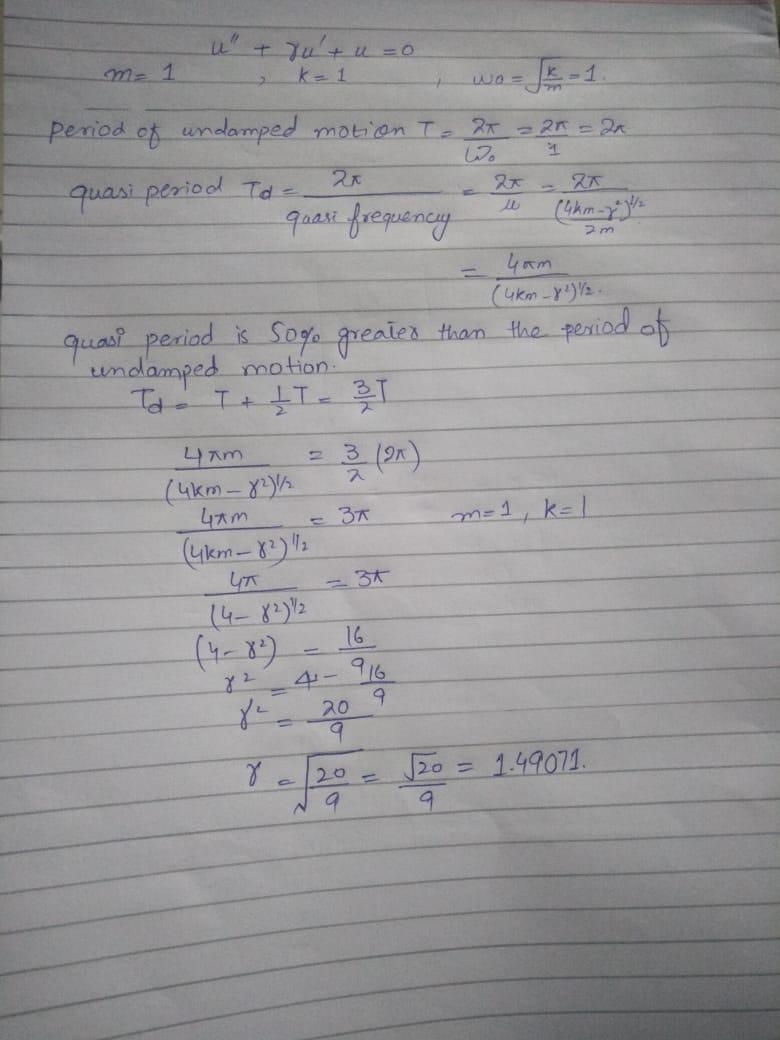 u'' + γu' + u = 0
m = 1 , k = 1 , ω0 = √k/m = 1.
period of undamped motion T = 2π/ω0 = 2π/1 = 2π
quasi period Td = 2π/quasi frequency = 2π/μ = 2π/((4km-γ²)^1/2/2m)
= 4πm/(4km-γ²)^1/2.
quasi period is 50% greater than the period of
undamped motion.
Td = T + 1/2 T = 3/2 T
4πm/(4km-γ²)^1/2 = 3/2 (2π)
4πm/(4km-γ²)^1/2 = 3π m=1, k=1
4π/(4-γ²)^1/2 = 3π
(4-γ²) = 16/9
γ² = 4 - 16/9
γ² = 20/9
γ = √20/9 = √20/9 = 1.49071.